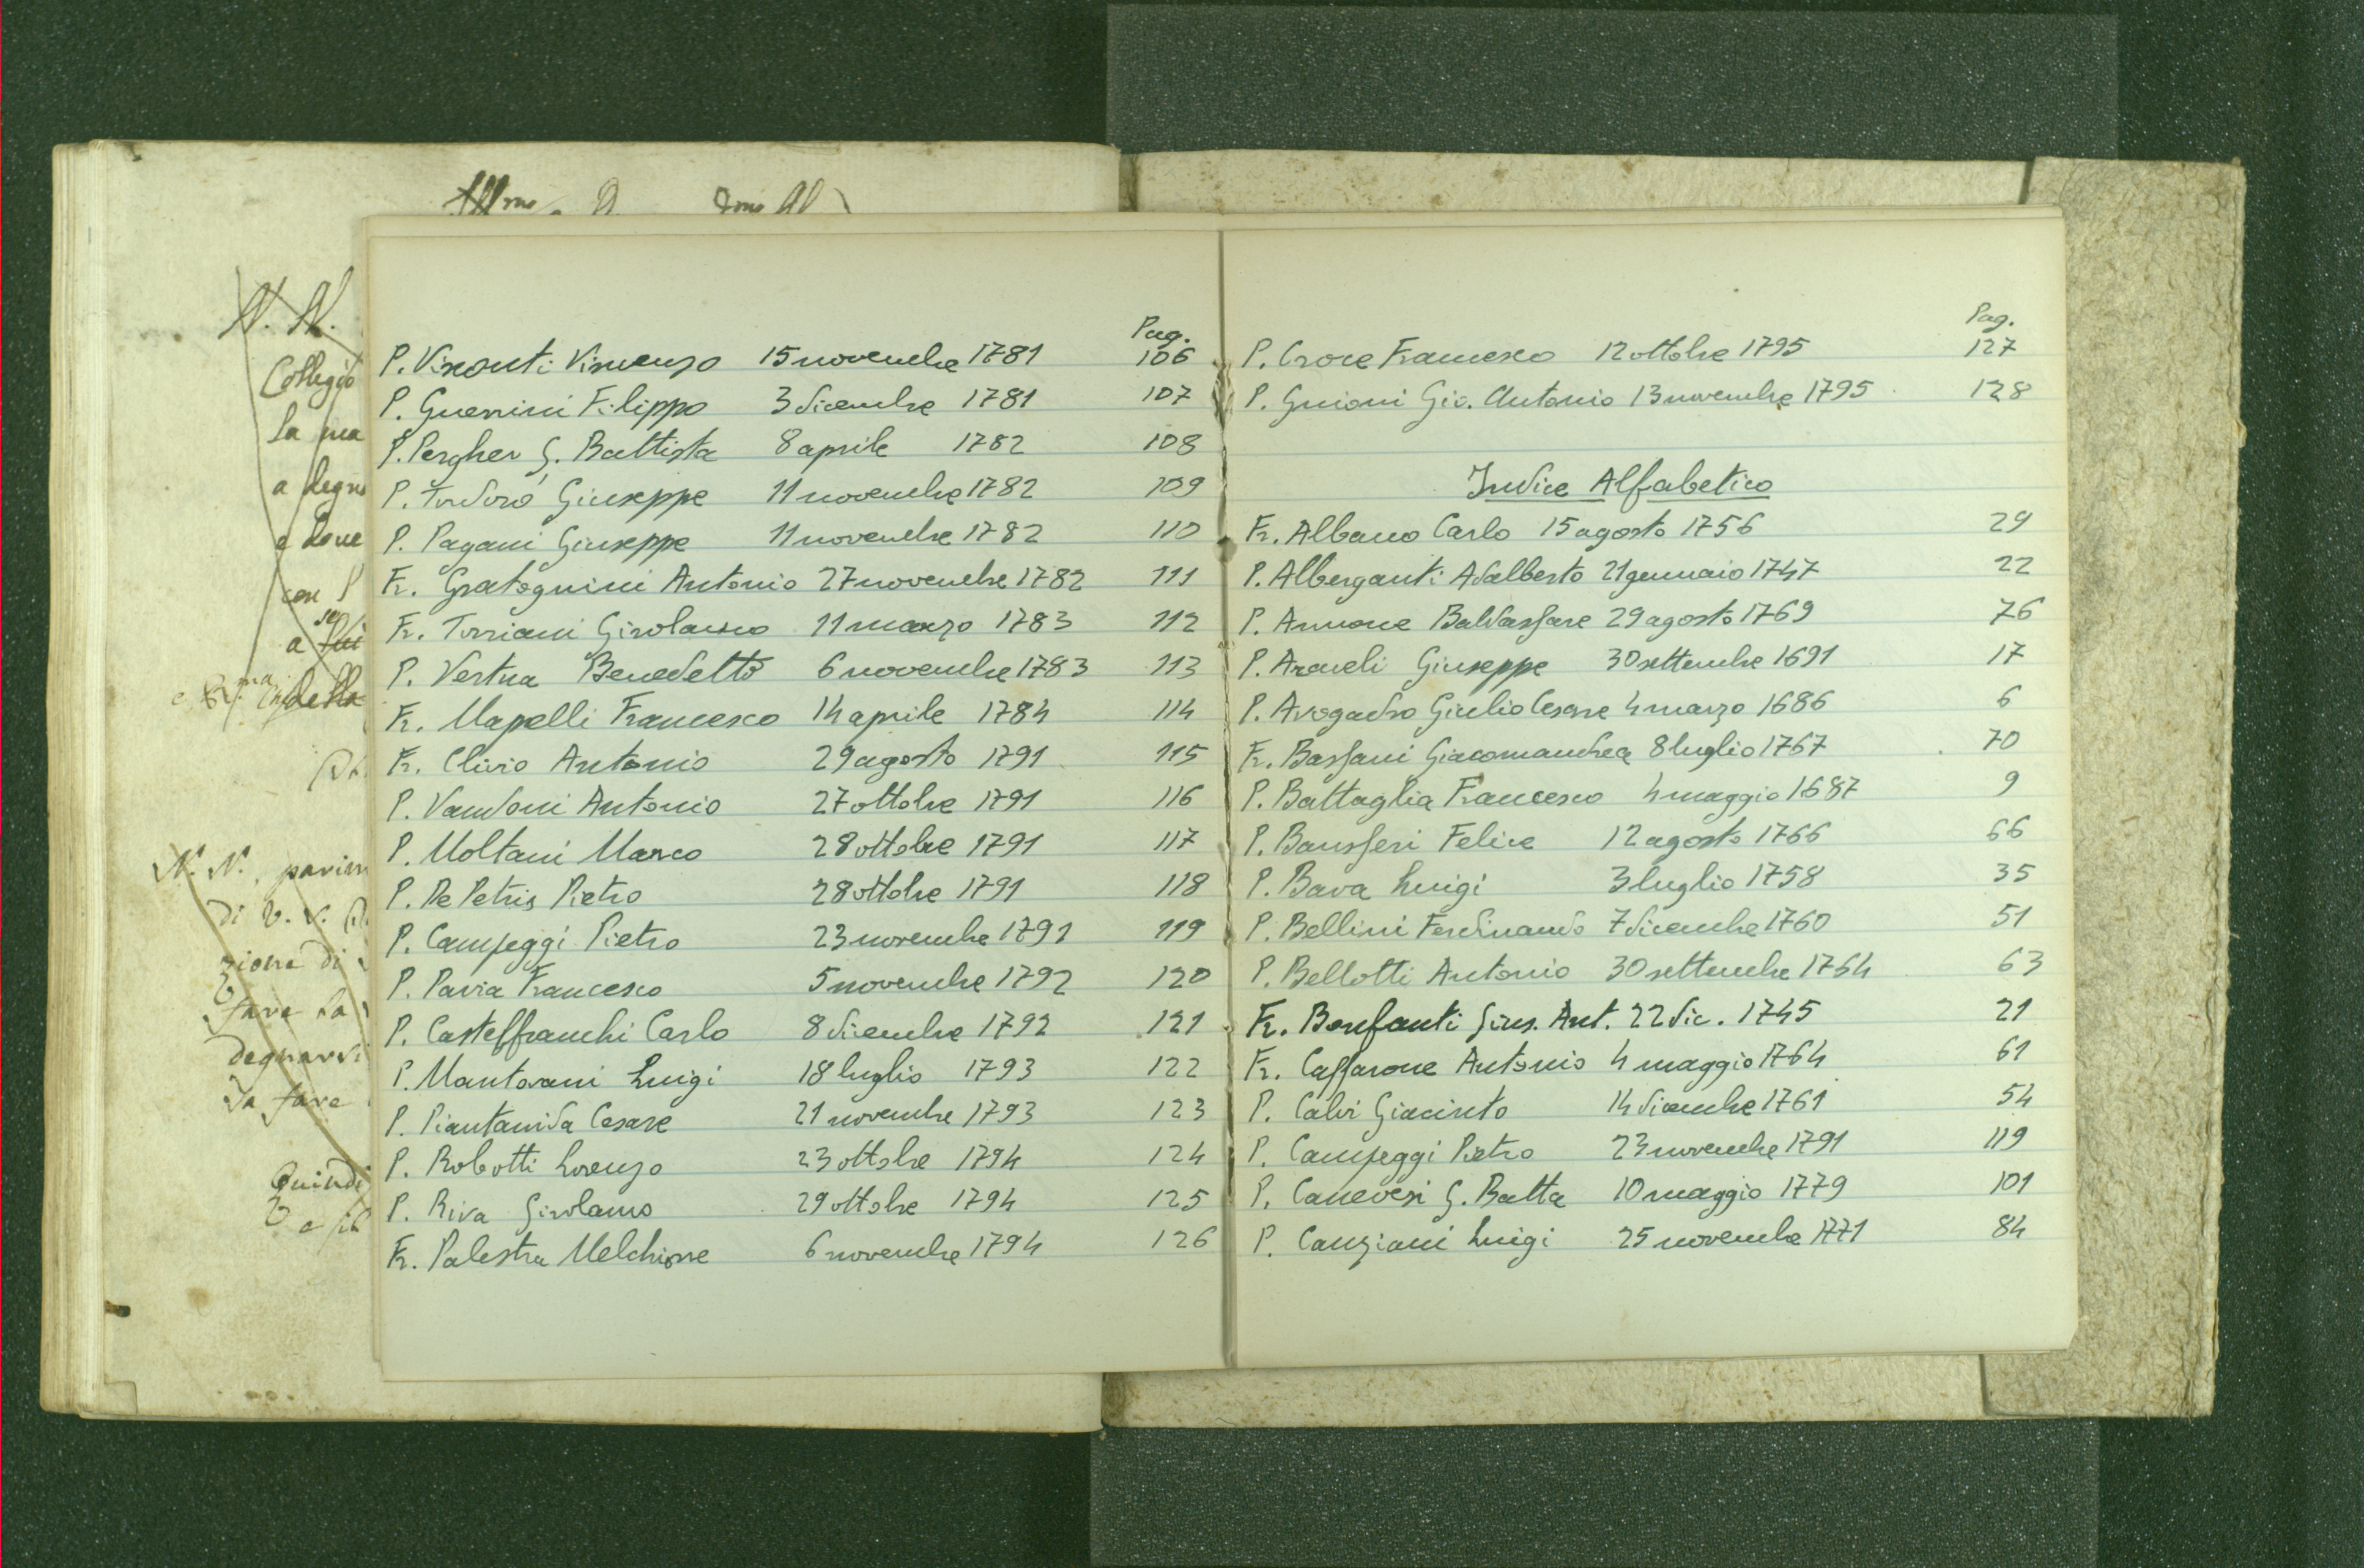 N. N.
Collegio
la ma
a degna
e dove
con l'
a lui
se
della
N. N., parim
di V. S.
zione di
fare la
degnarsi
da fare
Quindi
Pag.
P. Visconti Vincenzo 15 novembre 1781 106
P. Guerrini Filippo 3 dicembre 1781 107
P. Pergher G. Battista 8 aprile 1782 108
P. Giuseppe 11 novembre 1782 109
P. Pagani Giuseppe 11 novembre 1782 110
Fr. Gratognini Antonio 27 novembre 1782 111
Fr. Torriani Girolamo 11 marzo 1783 112
P. Vertua Benedetto 6 novembre 1783 113
Fr. Mapelli Francesco 14 aprile 1784 114
Fr. Clivio Antonio 29 agosto 1791 115
P. Vandoni Antonio 27 ottobre 1791 116
P. Moltani Marco 28 ottobre 1791 117
P. De Petris Pietro 28 ottobre 1791 118
P. Campeggi Pietro 23 novembre 1791 119
P. Pavia Francesco 5 novembre 1792 120
P. Casteffranchi Carlo 8 dicembre 1792 121
P. Mantovani Luigi 18 luglio 1793 122
P. Piantanida Cesare 21 novembre 1793 123
P. Robotti Lorenzo 23 ottobre 1794 124
P. Riva Girolamo 29 ottobre 1794 125
Fr. Palestra Melchiorre 6 novembre 1794 126
Pag.
P. Croce Francesco 12 ottobre 1795 127
P. Gnioni Gio. Antonio 13 novembre 1795 128
Indice Alfabetico
Fr. Albano Carlo 15 agosto 1756 29
P. Alberganti Adalberto 21 gennaio 1747 22
P. Annone Baldassare 29 agosto 1769 76
P. Araveli Giuseppe 30 settembre 1691 17
P. Avogadro Giulio Cesare 4 marzo 1686 6
Fr. Bassani Giacomandrea 8 luglio 1767 70
P. Battaglia Francesco 4 maggio 1687 9
P. Bansferi Felice 12 agosto 1766 66
P. Bava Luigi 3 luglio 1758 35
P. Bellini Ferdinando 7 dicembre 1760 51
P. Bellotti Antonio 30 settembre 1764 63
Fr. Bonfanti Gius. Ant. 22 dic. 1745 21
Fr. Caffarone Antonio 4 maggio 1764 61
P. Calvi Giacinto 14 dicembre 1761 54
P. Campeggi Pietro 23 novembre 1791 119
P. Canevesi G. Batta 10 maggio 1779 101
P. Canziani Luigi 25 novembre 1771 84